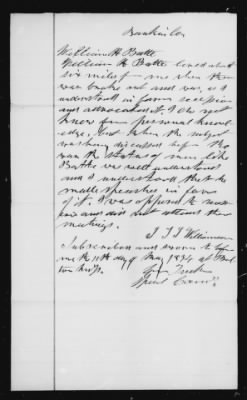 Rankin Co
William H. Batte
William H. Batte lived about
six miles from me when the
war broke out and was, as I
understood in favor secession
and advocated it. I do not
know from personal knowl-
edge, but when the subject
was being discussed before the
war the status of men like
Batte was well understood
and I understood that he
made speeches in favor
of it. I was opposed to seces-
sion and did not attend their
meetings.
J. J. Williamson
Subscribed and sworn to before
me the 11th day of May 1874 at